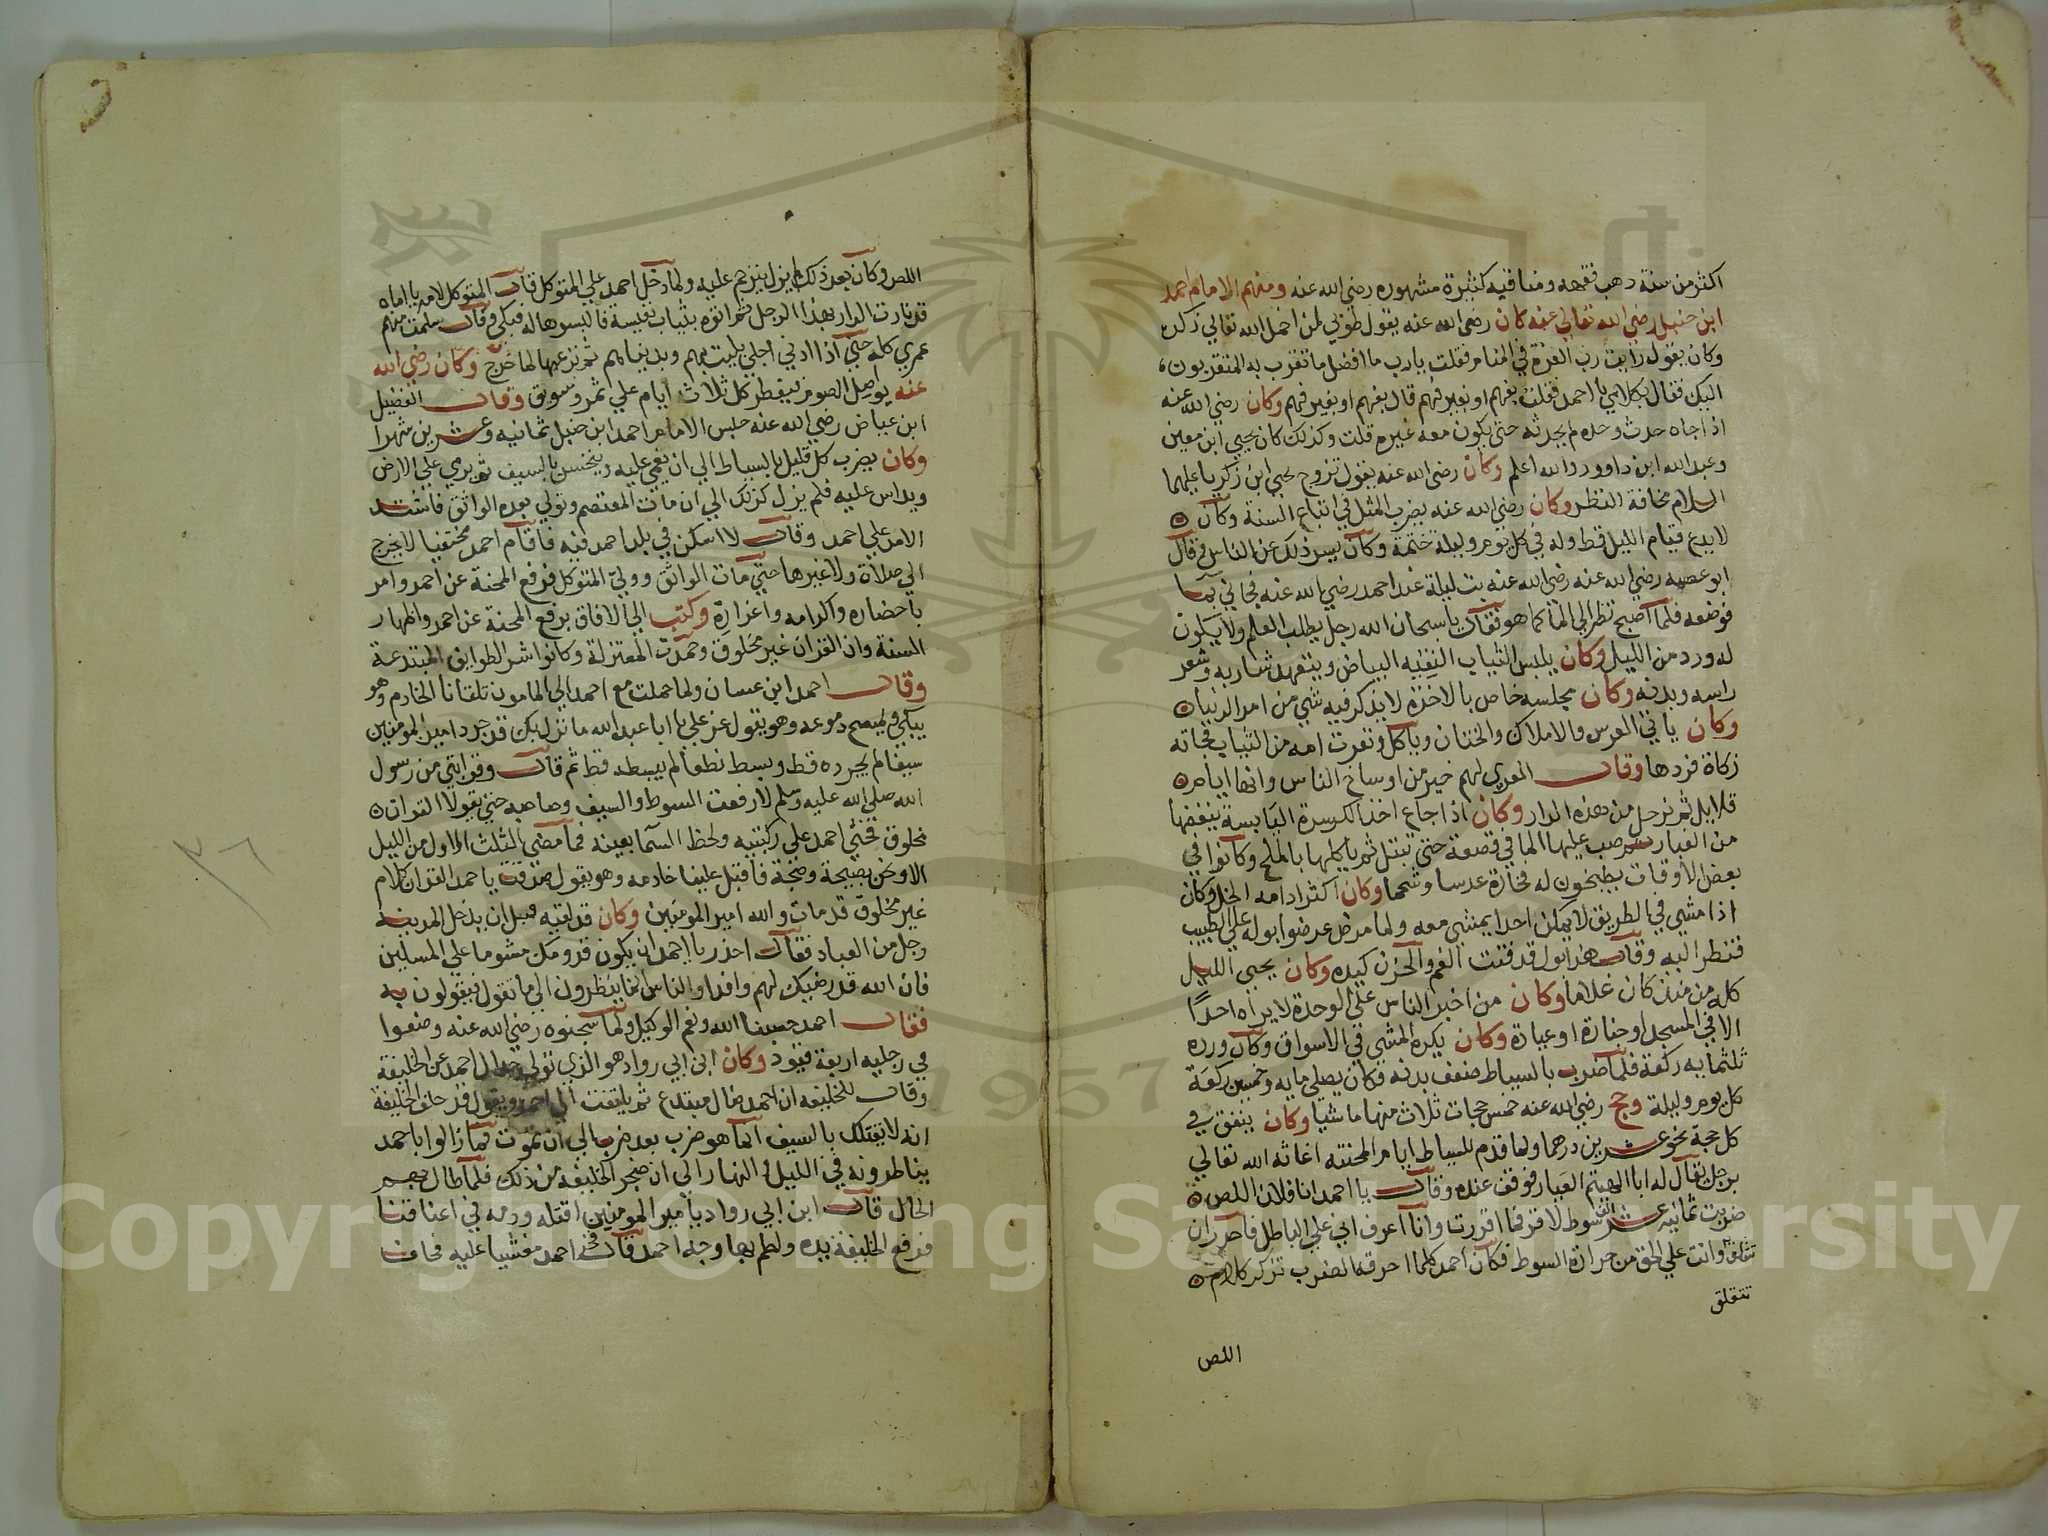 اكثر من سنة رهب فقمحه ومناقبه كثيرة مشهوره رضي الله عنه ومنهم الامام احمد
ابن حنبل رضي الله تعالي عنه كان رضي الله عنه يقول طوبي لمن اخمل الله تعالي ذكره
وكان يقول رايت رب العزة في المنام فقلت يارب ما افضل ما تقرب به المتقربون
اليك فقال بكلامي يا احمد فقلت بفهم او بغير فهم قال بفهم او بغير فهم وكان رضي الله عنه
اذا جاه حدث وحده لم يحدثه حتي يكون معه غيره قلت وكذلك كان يحيي ابن معين
وعبد الله ابن داوود والله اعلم وكان رضي الله عنه يقول تزوج يحيي ابن زكريا عليهما
السلام مخافة النظر وكان رضي الله عنه يضرب المثل في اتباع السنة وكان
لا يدع قيام الليل قط وله في كل يوم وليلة ختمة وكان يسر ذلك عن الناس قال
ابو عصمه رضي الله عنه رضي الله عنه بت ليلة عند احمد رضي الله عنه فجاني بما
فوضعه فلما اصبح نظر الي الما كما هو فقال يا سبحان الله رجل يطلب العلم ولا يكون
له ورد من الليل وكان يلبس الثياب النقيه البياض ويتعهد شاربه وشعر
راسه وبدنه وكان مجلسه خاص بالاخرة لا يذكر فيه شي من امر الدنيا
وكان ياتي العرس والاملاك والختان وياكل وتعرت امه من الثياب فجاته
زكاة فردها وقال العري لهم خير من اوساخ الناس وانها ايام
قلايل ثم نرحل من هذه الدار وكان اذا جاع اخذ الكسرة اليابسة ينفضها
من الغبار ثم صب عليها الما في قصعة حتي تبتل ثم ياكلها بالملح وكانوا في
بعض الاوقات يطبخون له فخارة عدسا وشحما وكان اكثر ادامه الخل وكان
اذا مشي في الطريق لا يمكن احدا يمشي معه ولما مرض عرضوا بوله علي الطبيب
فنظر اليه وقال هذا بول قد فتت الغم والحزن كبده وكان يحيي الليل
كله من منذ كان غلاما وكان من اخبر الناس علي الوحدة لا يراه احدا
الا في المسجد او جنازة او عيادة وكان يكره المشي في الاسواق وكان ورده
ثلثمايه ركعة فلما ضرب بالسياط ضعف بدنه فكان يصلي مايه وخمسين ركعة
كل يوم وليلة وحج رضي الله عنه خمس حجات ثلاث منها ماشيا وكان ينفق في
كل حجة نحو عشرين درهما ولما قدم للسياط ايام المحنته اغاثه الله تعالي
برجل يقال له ابا الهيثم العيار فوقف عنده وقال يا احمد انا فلان اللص
ضربت ثمانيه عشر الف سوط لاقر فما اقررت وانا اعرف اني علي الباطل فاحذر ان
تتقلق وانت علي الحق من حرارة السوط فكان احمد كلما احرقه الضرب تذكر كلام
تتقلق
اللص
اللص وكان بعد ذلك لم يزل يترحم عليه ولما دخل احمد علي المتوكل قال المتوكل لامه يا اماه
قد نارت الدار بهذا الرجل ثم اتوه بثياب نفيسة فالبسوها له فبكي وقال سلمت منهم
عمري كله حتي اذا دني اجلي بليت بهم وبدنياهم ثم نزعها لما خرج وكان رضي الله
عنه يواصل الصوم فيفطر كل ثلاث ايام علي تمر وسويق وقال الفضيل
ابن عياض رضي الله عنه حبس الامام احمد ابن حنبل ثمانيه وعشرين شهرا
وكان يضرب كل قليل بالسياط الي ان يغمي عليه وينخس بالسيف ثم يرمي علي الارض
ويداس عليه فلم يزل كذلك الي ان مات المعتصم وتولي بعده الواثق فاشتد
الامر علي احمد وقال لا اسكن في بلد احمد فيه فاقام احمد مختفيا لا يخرج
الي صلاة ولا غيرها حتي مات الواثق وولي المتوكل فرفع المحنة عن احمد وامر
باحضاره واكرامه واعزازه وكتب الي الافاق برفع المحنة عن احمد واظهار
السنة وان القران غير مخلوق وخمدت المعتزلة وكانوا شر الطوايف المبتدعة
وقال احمد ابن غسان ولما حملت مع احمد الي المامون تلقانا الخادم وهو
يبكي ويمسح دموعه وهو يقول عز علي يا ابا عبد الله ما نزل بك قد جرد امير المومنين
سيفا لم يجرده قط وبسط نطعا لم يبسطه قط ثم قال وقرابتي من رسول
الله صلي الله عليه وسلم لا رفعت السوط والسيف وصاحبه حتي يقولا القران
مخلوق فجثي احمد علي ركبتيه ولحظ السما بعينه فما مضي الثلث الاول من الليل
الا ونحن بصيحة وضجة فاقبل علينا خادمه وهو يقول صدقت يا احمد القران كلام
غير مخلوق قد مات والله امير المومنين وكان قد لقيه قبل ان يدخل المدينه
رجل من العباد فقال احذر يا احمد ان يكون قدومك مشوما علي المسلمين
فان الله قد رضيك لهم وافدا والناس انما ينظرون الي ما تقول فيقولون به
فقال احمد حسبنا الله ونعم الوكيل ولما سجنوه رضي الله عنه وضعوا
في رجليه اربعة قيود وكان ابن ابي رواد هو الذي تولي جدال احمد عن الخليفة
وقال للخليفه ان احمد ضال مبتدع ثم يلتفت الي احمد ويقول قد حلف الخليفة
انه لا يقتلك بالسيف انما هو ضرب بعد ضرب الي ان تموت فما زالوا باحمد
يناظرونه في الليل والنهار الي ان ضجر الخليفه من ذلك فلما طال بهم
الحال قال ابن ابي رواد يا امير المومنين اقتله ودمه في اعناقنا
فرفع الخليفة يده ولطم بها وجه احمد فخر احمد مغشيا عليه فخاف
٣٦